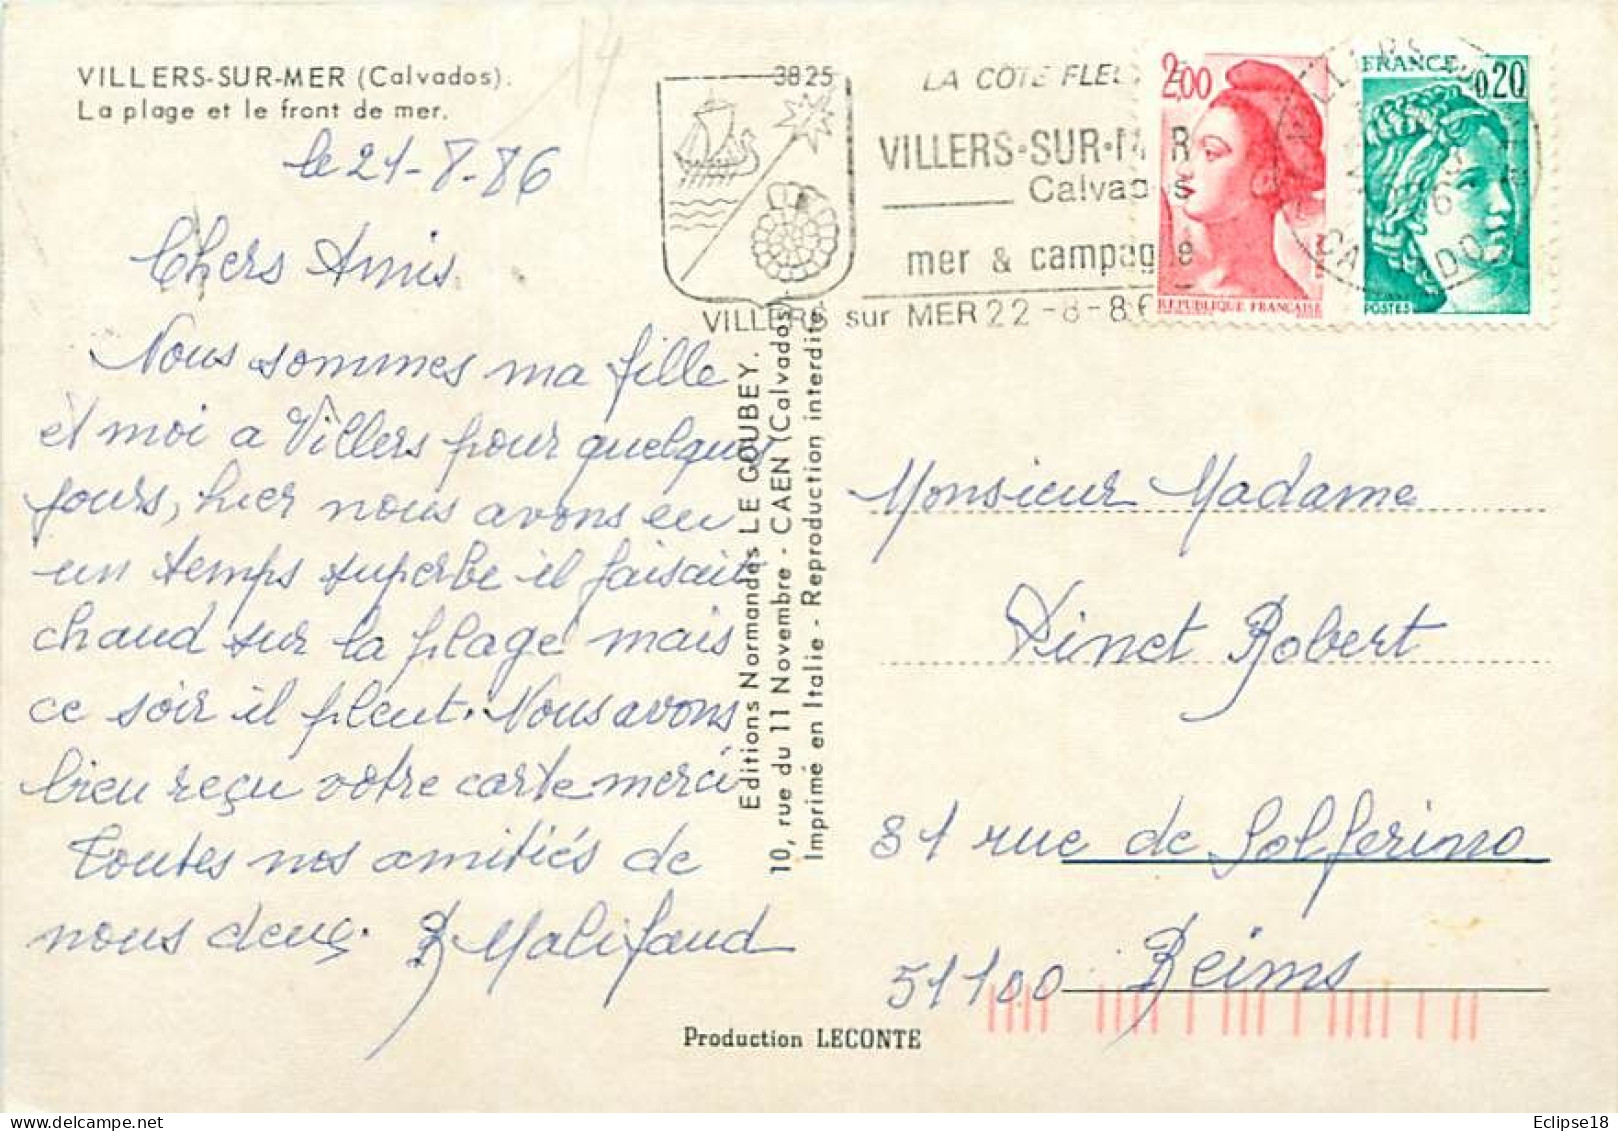 VILLERS-SUR-MER (Calvados).
La plage et le front de mer.
le 21-8-86
Chers Amis
Nous sommes ma fille
et moi a Villers pour quelques
jours, hier nous avons eu
un temps superbe il faisait
chaud sur la plage mais
ce soir il pleut. Nous avons
bien reçu votre carte merci
Toutes nos amitiés de
nous deux.
Malifaud
3825
LA COTE FLEU
VILLERS-SUR-MER
Calvados
mer & campagne
VILLERS sur MER 22-8-86
2,00
REPUBLIQUE FRANÇAISE
FRANCE
0,20
POSTES
Editions Normandes LE GOUBEY.
10, rue du 11 Novembre - CAEN (Calvados)
Imprimé en Italie - Reproduction interdite.
Monsieur Madame
Vinet Robert
81 rue de Solferino
51100 Reims
Production LECONTE
Eclipse18